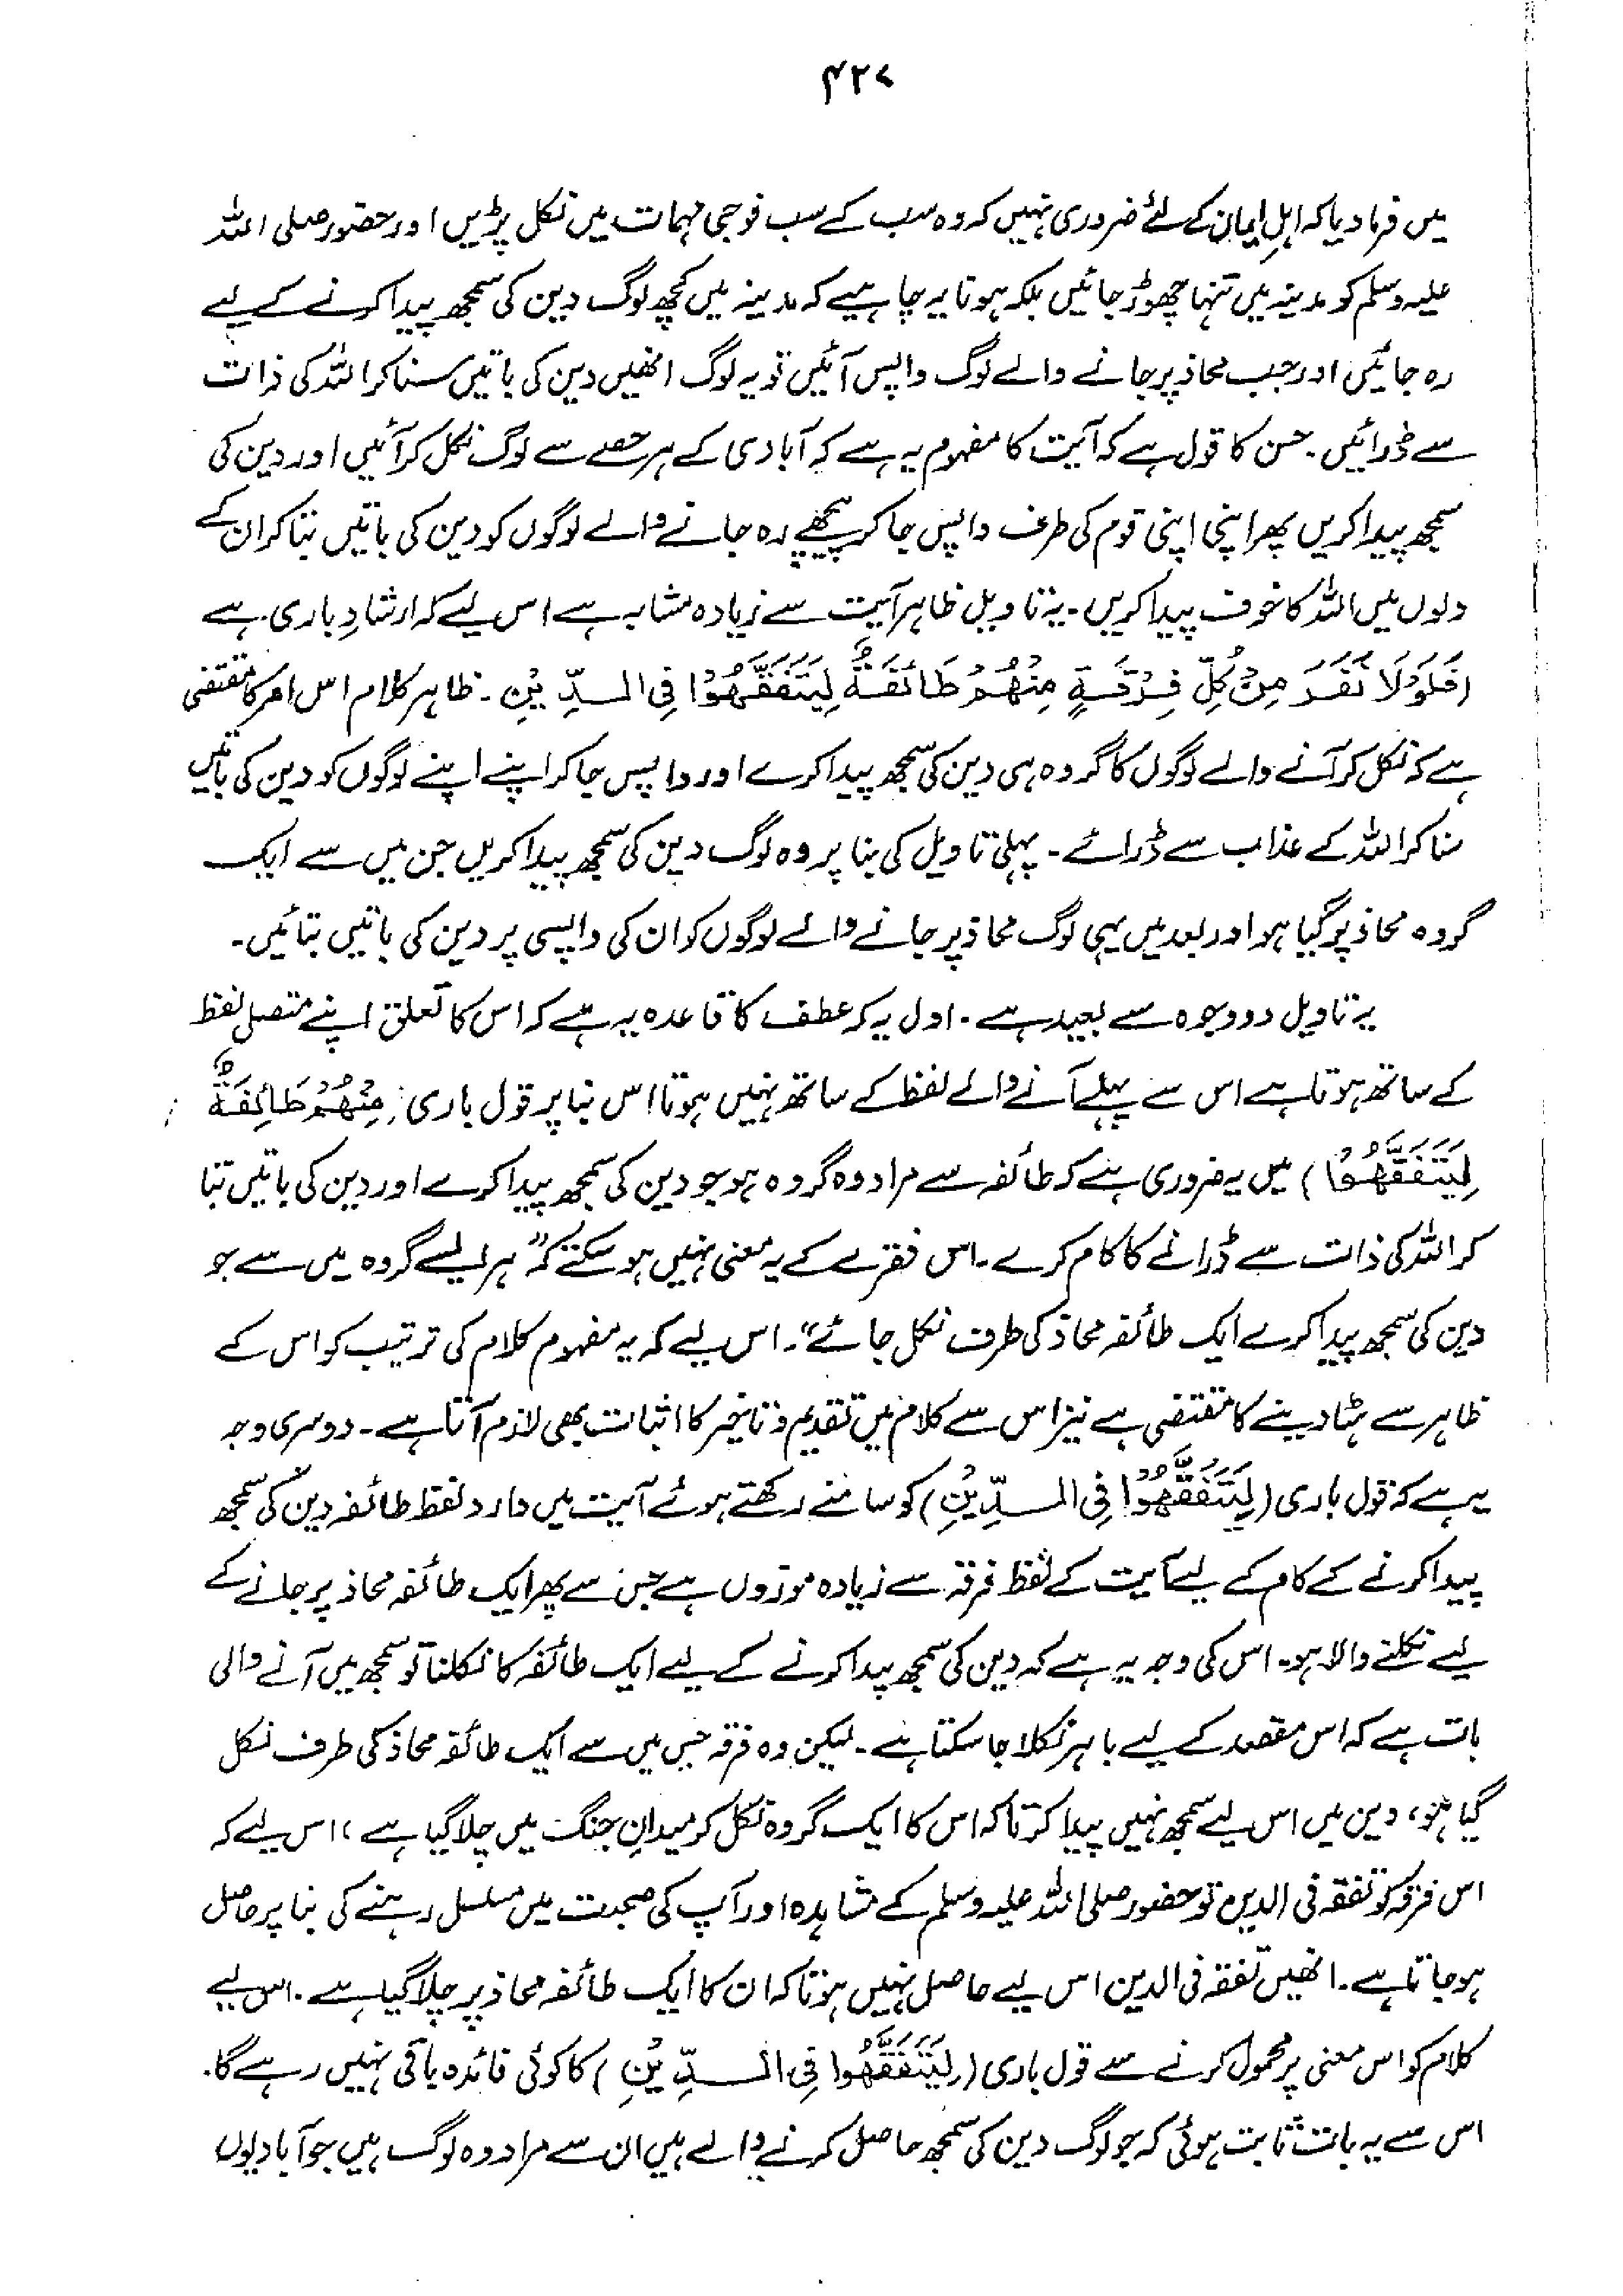 ۴۲۷
میں فرما دیا کہ اہلِ ایمان کے لئے ضروری نہیں کہ وہ سب کے سب فوجی مہمات میں نکل پڑیں اور حضور صلی اللہ
علیہ وسلم کو مدینہ میں تنہا چھوڑ جائیں بلکہ ہونا یہ چاہیے کہ مدینہ میں کچھ لوگ دین کی سمجھ پیدا کرنے کے لیے
رہ جائیں اور جب محاذ پر جانے والے لوگ واپس آئیں تو یہ لوگ انھیں دین کی باتیں سنا کر اللہ کی ذات
سے ڈرائیں۔ حسن کا قول ہے کہ آیت کا مفہوم یہ ہے کہ آبادی کے ہر حصے سے لوگ نکل کر آئیں اور دین کی
سمجھ پیدا کریں پھر اپنی اپنی قوم کی طرف واپس جا کر پیچھے رہ جانے والے لوگوں کو دین کی باتیں بتا کر ان کے
دلوں میں اللہ کا خوف پیدا کریں۔ یہ تاویل ظاہر آیت سے زیادہ مشابہ ہے اس لیے کہ ارشادِ باری ہے
(فَلَوْلَا نَفَرَ مِنْ كُلِّ فِرْقَةٍ مِنْهُمْ طَائِفَةٌ لِيَتَفَقَّهُوْا فِي الدِّيْنِ۔ ظاہر کلام اس امر کا مقتضی
ہے کہ نکل کر آنے والے لوگوں کا گروہ ہی دین کی سمجھ پیدا کرے اور واپس جا کر اپنے اپنے لوگوں کو دین کی باتیں
سنا کر اللہ کے عذاب سے ڈرائے۔ پہلی تاویل کی بنا پر وہ لوگ دین کی سمجھ پیدا کریں جن میں سے ایک
گروہ محاذ پر گیا ہو اور بعد میں یہی لوگ محاذ پر جانے والے لوگوں کو ان کی واپسی پر دین کی باتیں بتائیں۔
یہ تاویل دو وجوہ سے بعید ہے۔ اول یہ کہ عطف کا قاعدہ یہ ہے کہ اس کا تعلق اپنے متصل لفظ
کے ساتھ ہوتا ہے اس سے پہلے آنے والے لفظ کے ساتھ نہیں ہوتا اس بنا پر قول باری (مِنْهُمْ طَائِفَةٌ
لِيَتَفَقَّهُوْا) میں یہ ضروری ہے کہ طائفہ سے مراد وہ گروہ ہو جو دین کی سمجھ پیدا کرے اور دین کی باتیں بتا
کر اللہ کی ذات سے ڈرانے کا کام کرے۔ اس فقرے کے یہ معنی نہیں ہو سکتے کہ "ہر ایسے گروہ میں سے جو
دین کی سمجھ پیدا کرے ایک طائفہ محاذ کی طرف نکل جائے"۔ اس لیے کہ یہ مفہوم کلام کی ترتیب کو اس کے
ظاہر سے ہٹا دینے کا مقتضی ہے نیز اس سے کلام میں تقدیم و تاخیر کا اثبات بھی لازم آتا ہے۔ دوسری وجہ
یہ ہے کہ قول باری (لِيَتَفَقَّهُوْا فِي الدِّيْنِ) کو سامنے رکھتے ہوئے آیت میں وارد لفظ طائفہ دین کی سمجھ
پیدا کرنے کے کام کے لیے آیت کے لفظ فرقہ سے زیادہ موزوں ہے جس سے پھر ایک طائفہ محاذ پر جانے کے
لیے نکلنے والا ہو۔ اس کی وجہ یہ ہے کہ دین کی سمجھ پیدا کرنے کے لیے ایک طائفہ کا نکلنا تو سمجھ میں آنے والی
بات ہے کہ اس مقصد کے لیے باہر نکلا جا سکتا ہے۔ لیکن وہ فرقہ جس میں سے ایک طائفہ محاذ کی طرف نکل
گیا ہو، دین میں اس لیے سمجھ نہیں پیدا کرتا کہ اس کا ایک گروہ نکل کر میدانِ جنگ میں چلا گیا ہے، اس لیے کہ
اس فرقہ کو تفقہ فی الدین تو حضور صلی اللہ علیہ وسلم کے مشاہدہ اور آپ کی صحبت میں مسلسل رہنے کی بنا پر حاصل
ہو جاتا ہے۔ انھیں تفقہ فی الدین اس لیے حاصل نہیں ہوتا کہ ان کا ایک طائفہ محاذ پر چلا گیا ہے۔ اس لیے
کلام کو اس معنی پر محمول کرنے سے قول باری (لِيَتَفَقَّهُوا فِي الدِّيْنِ) کا کوئی فائدہ باقی نہیں رہے گا۔
اس سے یہ بات ثابت ہوئی کہ جو لوگ دین کی سمجھ حاصل کرنے والے ہیں ان سے مراد وہ لوگ ہیں جو آبادیوں